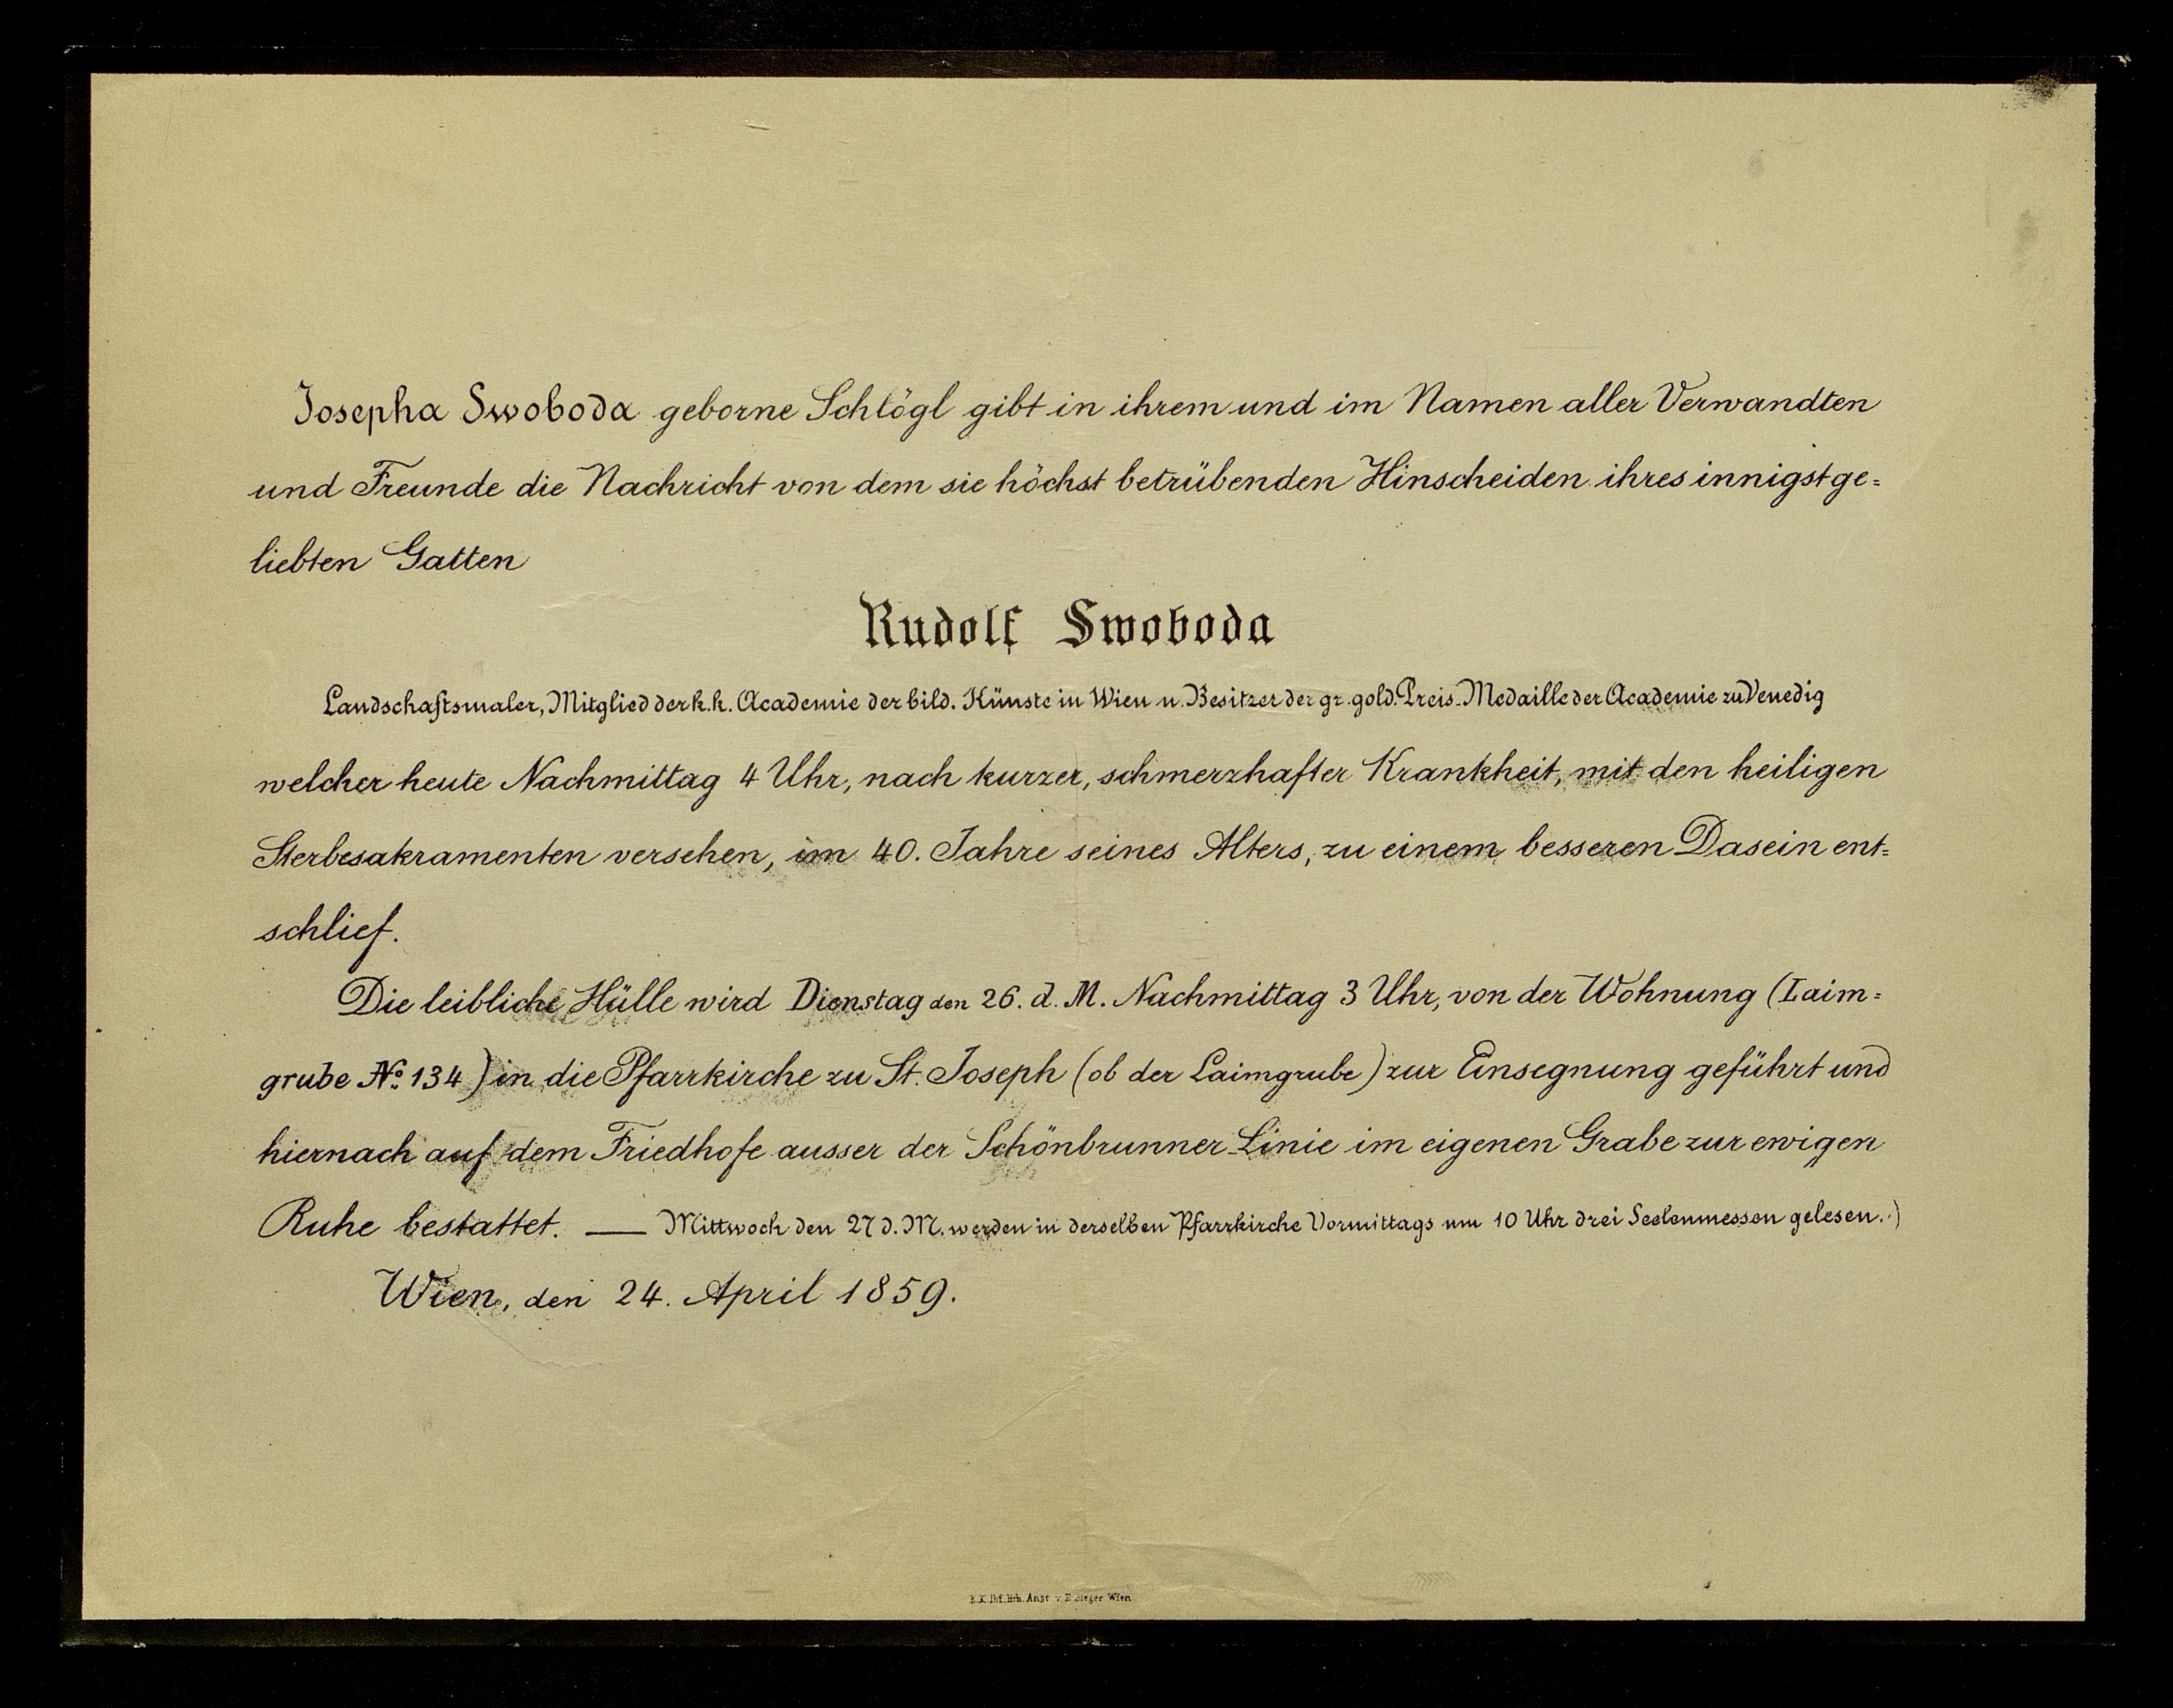 Josepha Swoboda geborne Schlögl gibt in ihrem und im Namen aller Verwandten
und Freunde die Nachricht von dem sie höchst betrübenden Hinscheiden ihres innigstge=
liebten Gatten
Rudolf Swoboda
Landschaftsmaler, Mitglied der k.k. Academie der bild. Künste in Wien u. Besitzer der gr. gold. Preis-Medaille der Academie zu Venedig
welcher heute Nachmittag 4 Uhr, nach kurzer, schmerzhafter Krankheit, mit den heiligen
Sterbesakramenten versehen, im 40. Jahre seines Alters, zu einem besseren Dasein ent=
schlief.
Die leibliche Hülle wird Dienstag den 26. d. M. Nachmittag 3 Uhr, von der Wohnung (Laim=
grube No. 134) in die Pfarrkirche zu St. Joseph (ob der Laimgrube) zur Einsegnung geführt und
hiernach auf dem Friedhofe ausser der Schönbrunner-Linie im eigenen Grabe zur ewigen
Ruhe bestattet. — Mittwoch den 27 d. M. werden in derselben Pfarrkirche Vormittags um 10 Uhr drei Seelenmessen gelesen.)
Wien, den 24. April 1859.
K.K. Hof. lith. Anst v. E Sieger Wien